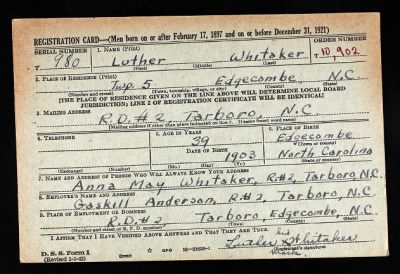 REGISTRATION CARD—(Men born on or after February 17, 1897 and on or before December 31, 1921)
SERIAL NUMBER 1. NAME (Print) ORDER NUMBER
T 980 Luther Whitaker T10,902
(First) (Middle) (Last)
2. PLACE OF RESIDENCE (Print)
Twp. 5 Edgecombe N.C.
(Number and street) (Town, township, village, or city) (County) (State)
[THE PLACE OF RESIDENCE GIVEN ON THE LINE ABOVE WILL DETERMINE LOCAL BOARD
JURISDICTION; LINE 2 OF REGISTRATION CERTIFICATE WILL BE IDENTICAL]
3. MAILING ADDRESS
R.D. # 2, Tarboro, N.C.
[Mailing address if other than place indicated on line 2. If same insert word same]
4. TELEPHONE 5. AGE IN YEARS 6. PLACE OF BIRTH
39 Edgecombe
DATE OF BIRTH (Town or county)
1903 North Carolina
(Exchange) (Number) (Mo.) (Day) (Yr.) (State or country)
7. NAME AND ADDRESS OF PERSON WHO WILL ALWAYS KNOW YOUR ADDRESS
Anna May Whitaker, R.#2, Tarboro, N.C.
8. EMPLOYER'S NAME AND ADDRESS
Gaskill Anderson, R.#2, Tarboro, N.C.
9. PLACE OF EMPLOYMENT OR BUSINESS
R.D.#2 Tarboro, Edgecombe, N.C.
(Number and street or R. F. D. number) (Town) (County) (State)
I AFFIRM THAT I HAVE VERIFIED ABOVE ANSWERS AND THAT THEY ARE TRUE.
his
D. S. S. Form 1 Luther X Whitaker
(Revised 1-1-42) (over) GPO 16—21630-1 mark